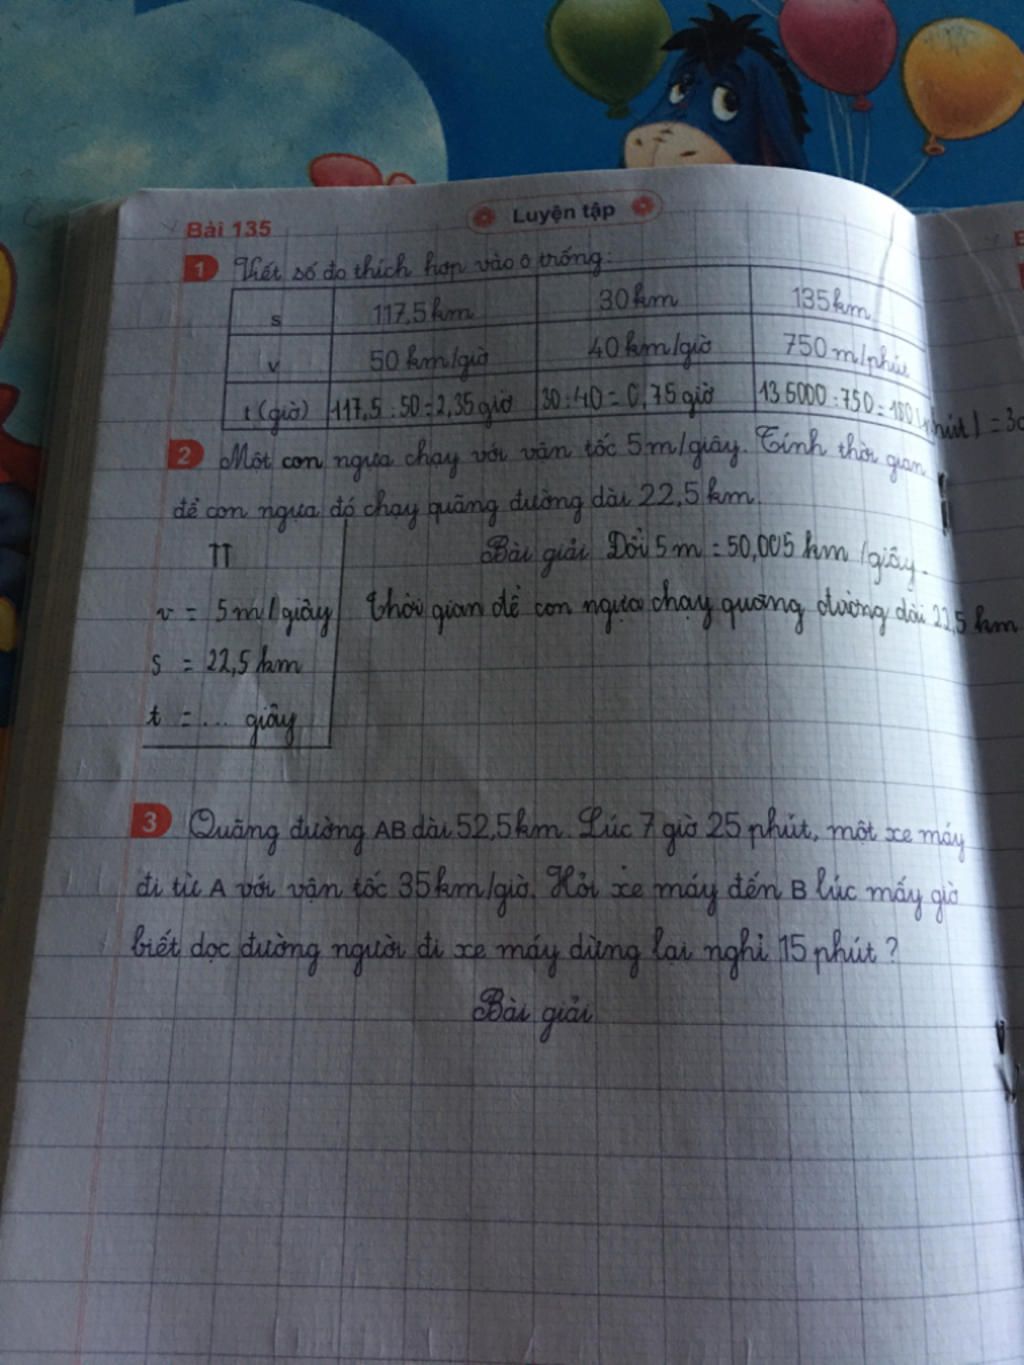 Bài 135
Luyện tập
1 Viết số đo thích hợp vào ô trống:
s 117,5 km 30 km 135 km
v 50 km/giờ 40 km/giờ 750 m/phút
t (giờ) 117,5 : 50 = 2,35 giờ 30 : 40 = 0,75 giờ 135000 : 750 = 180 (phút) = 3
2 Một con ngựa chạy với vận tốc 5 m/giây. Tính thời gian
để con ngựa đó chạy quãng đường dài 22,5 km.
Bài giải Đổi 5 m = 50,005 km /giây.
TT
v = 5 m/giây Thời gian để con ngựa chạy quang đường dài 22,5 km
s = 22,5 km
t = ... giây
3 Quãng đường AB dài 52,5 km. Lúc 7 giờ 25 phút, một xe máy
đi từ A với vận tốc 35 km/giờ. Hỏi xe máy đến B lúc mấy giờ
biết dọc đường người đi xe máy dừng lại nghỉ 15 phút?
Bài giải